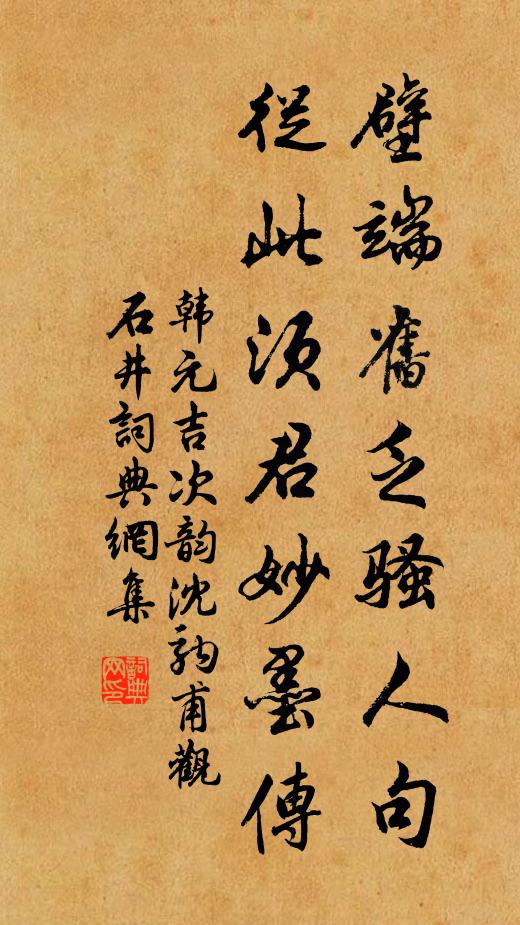 壁端舊乏騷人句
從此須君妙墨傳
韩元吉次韵沈駒甫觀
石井詞典網集
詞典网印